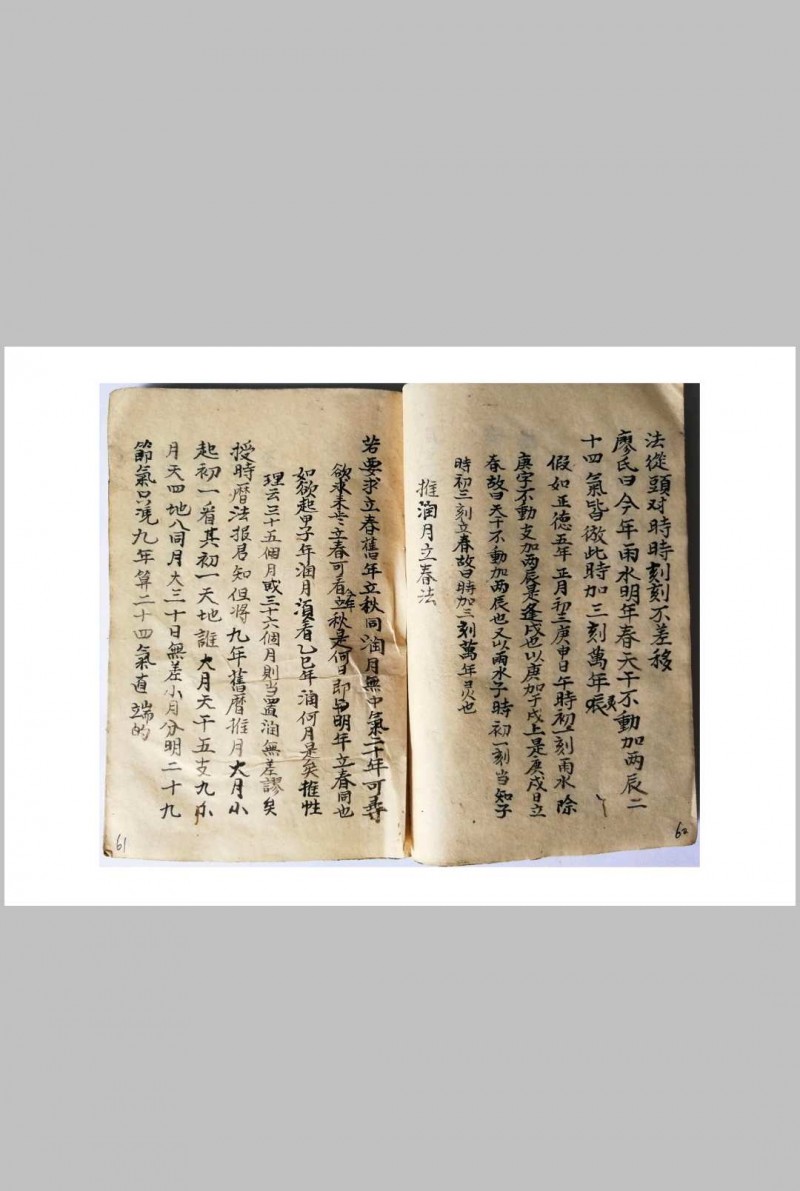 法從頭対時時刻刻不差移
廖氏曰今年雨水明年春天干不動加两辰二
十四氣皆倣此時加三刻萬年
假如正德五年正月初三庚申日午時初一刻雨水除
庚字不動支加两辰是逢戌也以庚加于戌上是庚戌日立
春故曰天干不動加两辰也又以雨水子時初一刻当知子
時初三刻立春故曰時加三刻萬年灵也
推润月立春法
若要求立春舊年立秋同润月無中氣二十年可尋
欲求来立春可看今年立秋是何日即與明年立春同也
如欲起甲子年润月湏看乙巳年润何月是矣推性
理云三十五個月或三十六個月則当置润無差謬矣
授時曆法报君知但将九年舊曆推月大月小
起初一看其初一天地誰大月天干五支九小
月天四地八同月大三十日無差小月分明二十九
節氣只凴九年算二十四氣直端的
61
62